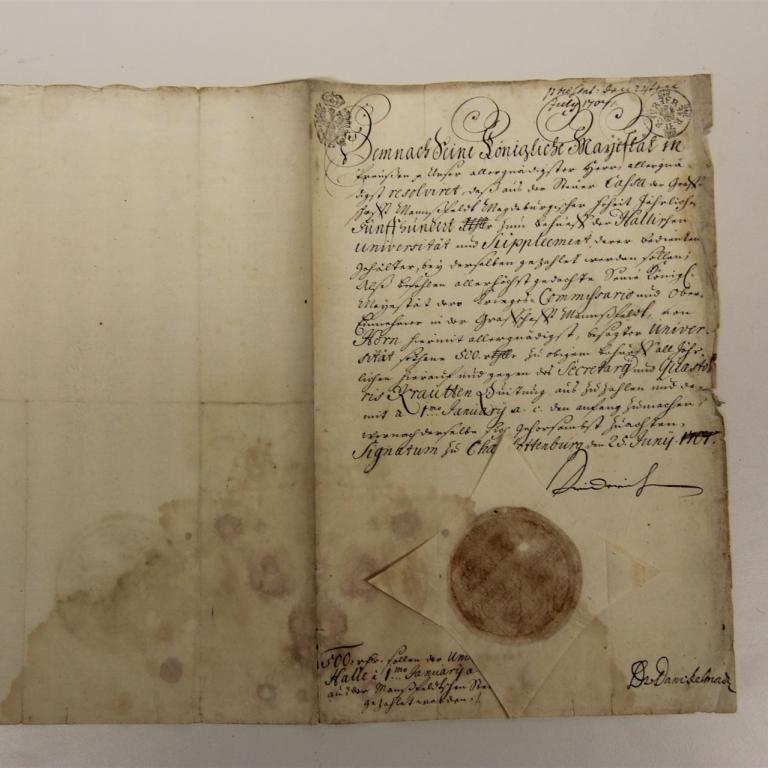 præsent: den
July 1707.
Demnach Seine Königliche Mayestät in
Preußen p Unser allergnädigster Herr, allergnä-
digst resolviret, daß aus der Steuer Cassa der Graff-
schafft Mannßfeldt Magdeburgischer Hoheit Jährlichen
Fünff hundert rthlr zum behueff der Hallischen
Universität und Supplement derer Bedienten
Gehälter, bey derselben gezahlet werden sollen;
Alß befehlen allerhöchst gedachte Seine Königl.
Mayestät dero Krieges Commissario und Ober-
Einnehmer in der Graffschafft Mannßfeldt, von
Horn hiermit allergnädigst, besagter Univer-
sität solche 500. rthlr zu obigem behueff all Jähr-
lichen hierauf und gegen des Secretarÿ und Quæsto-
ris Krautten Quitung auszuzahlen und da-
mit a 1.mo January a. c. den anfang zumachen,
wornach derselbe sich gehorsambst zuachten,
Signatum zu Cha ottenburg den 25. Juny.
Friderich
500. rthlr. sollen der Uni
Halle à 1.mo January a
aus der Manßfeldischen Steu
gezahlet werden.